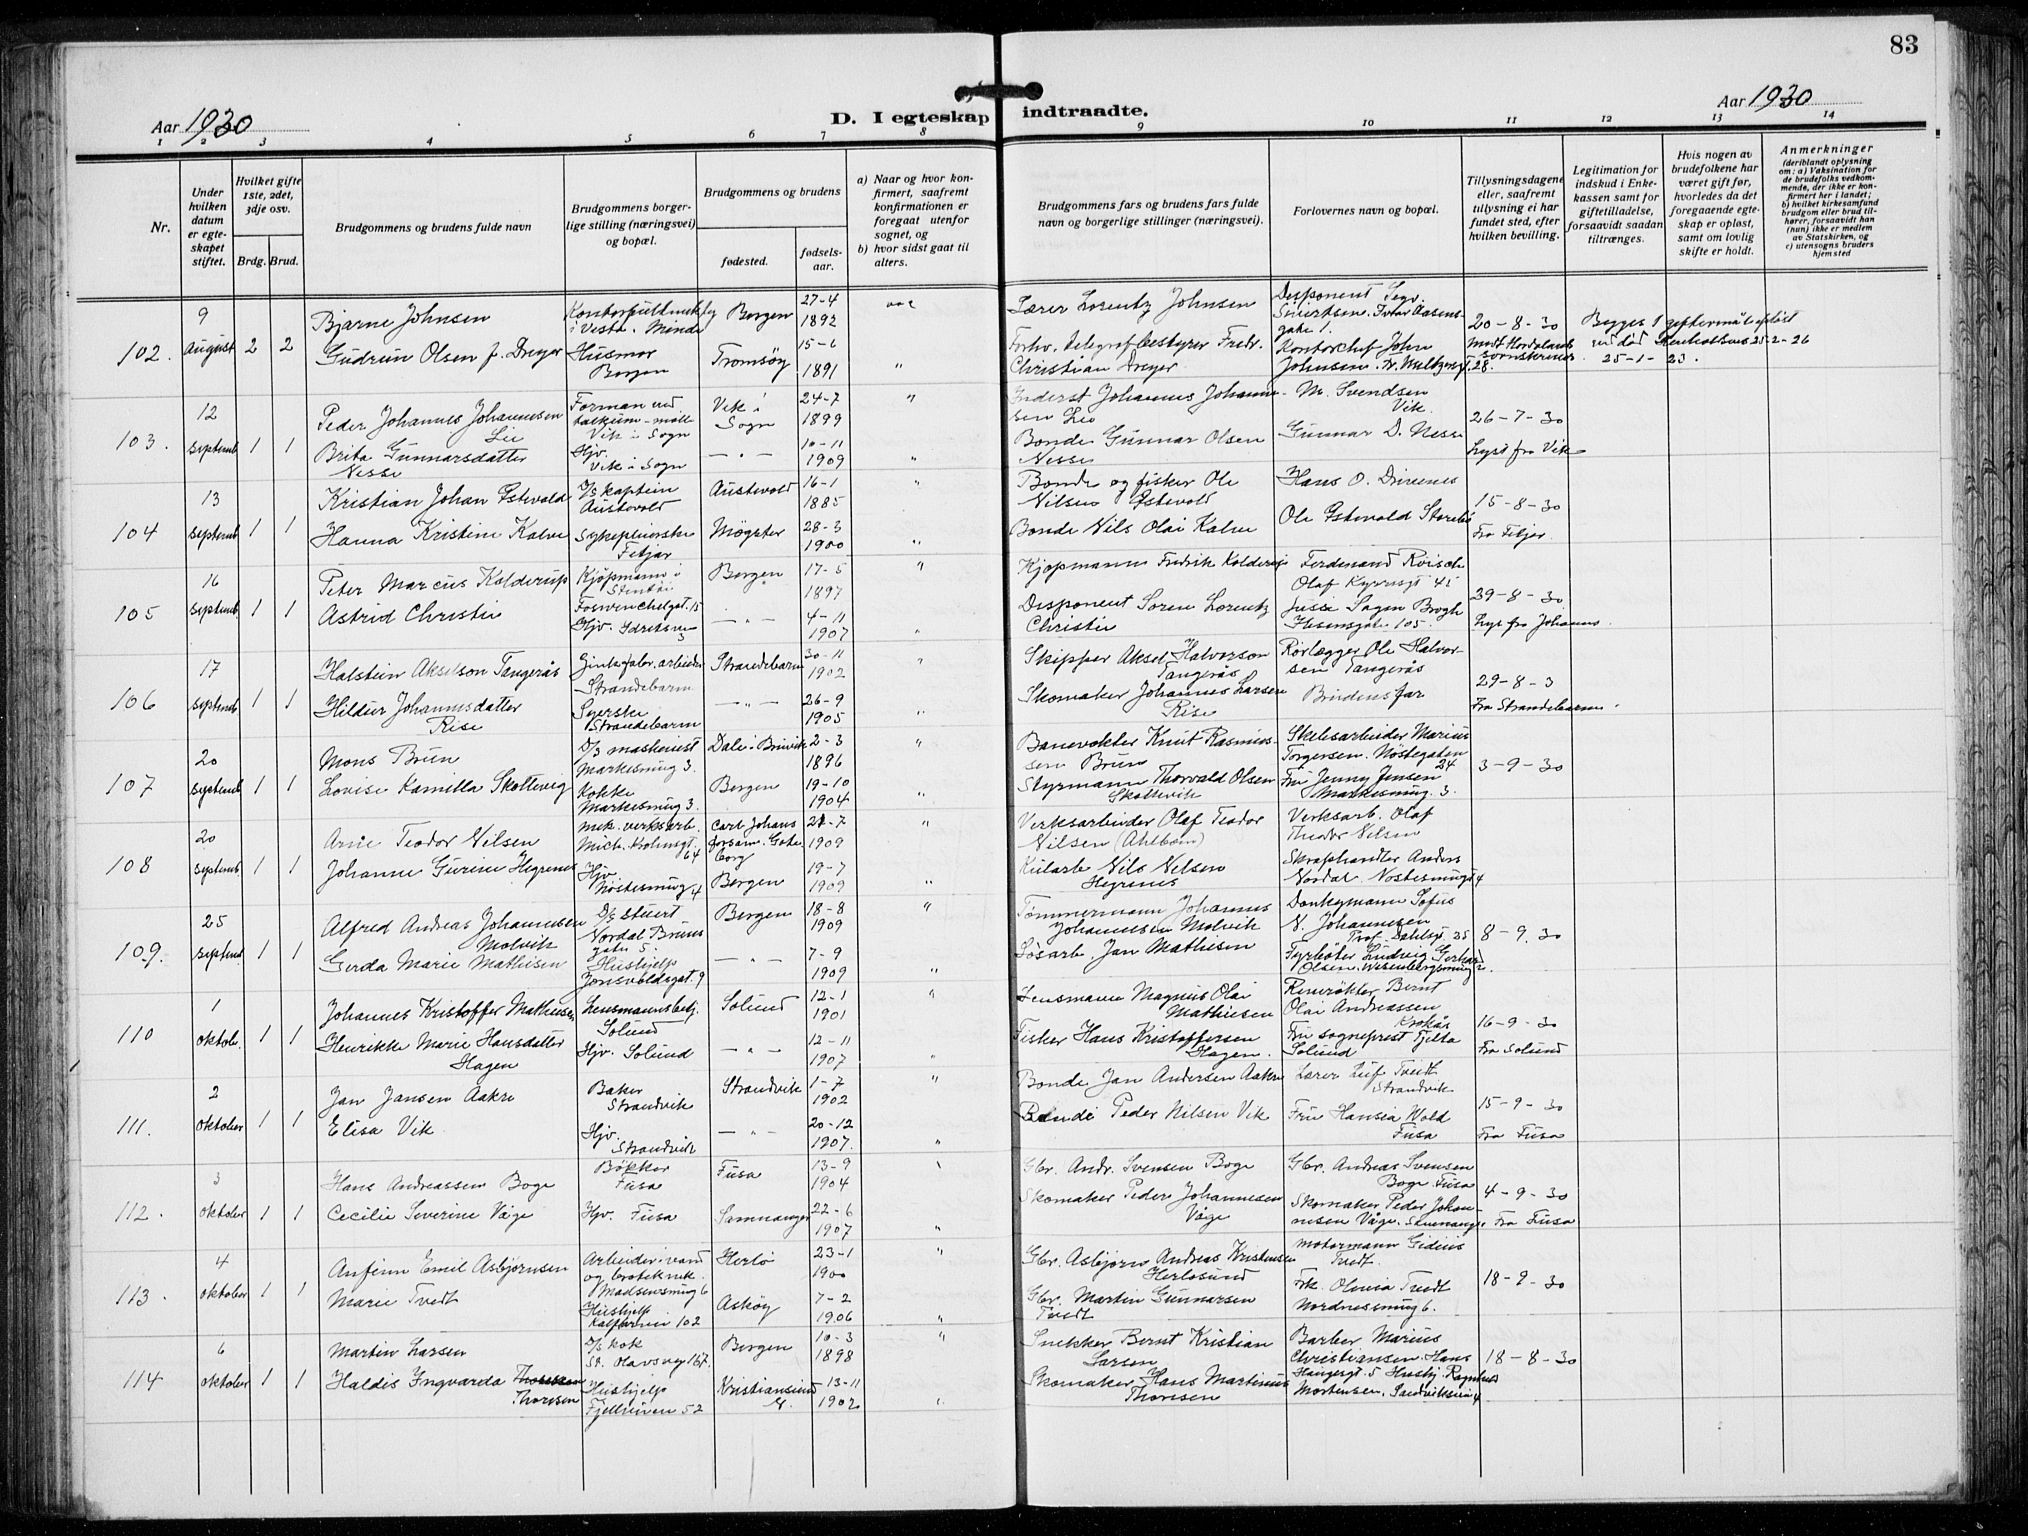 83
Aar 1930
D. I egteskap indtraadte.
Aar 1930
1 2 3 4 5 6 7 8 9 10 11 12 13 14
Nr.
Under hvilken datum er egteskapet stiftet.
Hvilket gifte 1ste, 2det, 3dje osv.
Brdg. Brud.
Brudgommens og brudens fulde navn
Brudgommens borgerlige stilling (næringsvei) og bopæl.
Brudgommens og brudens
fødested.
fødselsaar.
a) Naar og hvor konfirmert, saafremt konfirmationen er foregaat utenfor sognet, og
b) hvor sidst gaat til alters.
Brudgommens fars og brudens fars fulde navn og borgerlige stillinger (næringsvei).
Forlovernes navn og bopæl.
Tillysningsdagene eller, saafremt tillysning ei har fundet sted, efter hvilken bevilling.
Legitimation for indskud i Enkekassen samt for giftetilladelse, forsaavidt saadan tiltrænges.
Hvis nogen av brudefolkene har været gift før, hvorledes da det foregaaende egteskap er opløst, samt om lovlig skifte er holdt.
Anmerkninger
(deriblandt oplysning om: a) Vaksination for de brudefolks vedkommende, der ikke er konfirmert her i landet; b) hvilket kirkesamfund brudgom eller brud tilhører, forsaavidt han (hun) ikke er medlem av Statskirken, og c) utensogns bruders hjemsted
102. 9 August 2 2
Bjarne Johnsen
i Vesta. Minde
Bergen 27-4 1892
Lærer Lorentz Johnsen
Disponent
gate 1.
Gudrun Olsen f. Dreyer
Husmor Bergen
Tromsøy 15-6 1891 "
Forhv. Telegrafbestyrer Fredr. Christian Dreyer
Kontorchef John Johnsen.
20-8-30
28.
Begges 1 giftermål opløst ved død
25-2-26
25-1-23.
103. 12 septemb 1 1
Peder Johannes Johannesen Lie
Forman ved talkum-mølle Vik i Sogn
Vik i Sogn 24-7 1899 "
Inderst Johannes Johannesen Lie
M. Svendsen Vik.
Brita Gunnarsdatter Nesse
Hjv. Vik i Sogn
— " — 10-11 1909 "
Bonde Gunnar Olsen Nesse
Gunnar D. Nesse
26-7-30
Lyst fra Vik
104 13 septemb 1 1
Kristian Johan Østevold
D/s kaptein Austevold
Austevold 16-1 1885 "
Bonde og fisker Ole Nilsen Østevold
Hans O. Drivenes
Hanna Kristine Kalve
Sykepleierske Fitjar
Møgster 28-3 1900 "
Bonde Nils Olai Kalve
Ole Østevold Storebø
15-8-30
Fra Fitjar.
105 16 septemb 1 1
Peter Marcus Kolderup
Kjøpmann i
Bergen 17-5 1897 "
Kjøpmann Fredrik Kolderup
Ferdinand
Olaf Kyrresgt 45
Astrid Christie
15
Hjv. 3
— " — 4-11 1907 "
Disponent Søren Lorentz Christie
105.
29-8-30
Lyst fra Johannes.
106 17 septemb 1 1
Halstein Akselson Tangerås
Zinkfabr. arbeider Strandebarm
Strandebarm 30-11 1902 "
Skipper Aksel Halvorson Tangerås
Rørlegger Ole Halvorsen Tangerås
Hildur Johannesdatter Rise
Syerske Strandebarm
— " — 26-9 1905 "
Skomaker Johannes Larsen Rise
Brudens far
29-8-3
Fra Strandebarm.
107 20 septemb 1 1
Mons Brun
D/s maskinist Markesmug 3.
Dale i Bruvik 2-3 1896 "
Banevokter Knut Rasmussen Brun
Torgersen. Nøstegaten 24
Lovise Kamilla Skottevig
Kokke Markesmug 3.
Bergen 19-10 1904 "
Styrmann Thorvald Olsen Skottevik
Fru Jenny Jensen Markesmug. 3.
3-9-30
108 20 septemb 1 1
Arne Teodor Nilsen
Mek. verksarb. Mich. Krohnsgt. 64
Carl Johans forsam. Gøteborg
21-7 1909 "
Verksarbeider Olaf Teodor Nilsen (Ahlbom)
Verksarb. Olaf Theodor Nilsen
Johanne Gurine Hegrenes
Hjv. Nøstesmug 4
Bergen 19-7 1909 "
Kularb Nils Nilsen Hegrenes
Skraphandler Anders Nordal. Nøstesmug 4
109. 25 septemb 1 1
Alfred Andreas Johannesen Molvik
D/s stuert Nordal Bruns gate 5.
Bergen 18-8 1909 "
Tømmermann Johannes Johannesen Molvik
Donkeymann Sofus N. Johannesen Prof. Dahlsgt. 35
Gerda Marie Mathisen
Hushjelp Jonsvoldsgat. 9
— " — 7-9 1909 "
Løsarb. Jan Mathisen
Fyrbøter Ludvig Gerhard Olsen. Wesenbergsmug 2.
8-9.30
110 1 oktober 1 1
Johannes Kristoffer Mathisen
Lensmannsbetj. Solund
Solund 12-1 1901 "
Lensmann Magnus Olai Mathisen
Bernt Olai Andreassen
Henrikke Marie Hansdatter Hagen
Hjv. Solund
— " — 12-11 1907 "
Fisker Hans Kristoffersen Hagen.
Fru sogneprest Fjelta Solund
16-9-30
Fra Solund
111. 2 oktober 1 1
Jan Jansen Aakre
Baker Strandvik
Strandvik 1-7 1902 "
Bonde Jan Andersen Aakre
Lærer Leif Tveit Strandvik
Elisa Vik
Hjv. Strandvik
— " — 20-12 1907. "
Bonde Peder Nilsen Vik
Fru Hansia Wold Fusa
15-9-30
Fra Fusa
112. 3 oktober 1 1
Hans Andreassen Boge
Bøkker Fusa
Fusa 13-9 1904 "
Gbr. Andr. Svensen Boge
Gbr. Andreas Svensen Boge Fusa
Cecilie Severine Våge
Hjv. Fusa
Samnanger 22-6 1907 "
Skomaker Peder Johannesen Våge
Skomaker Peder Johannesen Våge. Samnanger
4-9-30
Fra Fusa
113. 4 oktober 1 1
Anfinn Emil Asbjørnsen
Arbeider i vand og kloakk Madsensmug 6
Herlø 23-1 1900 "
Gbr. Asbjørn Andreas Kristensen Herløsund
Motormann Gidius Tvedt.
Marie Tvedt
Hushjelp Kalfarvei 102
Askøy 7-2 1906 "
Gbr. Martin Gunnarsen Tvedt
Frk. Olivia Tvedt Nordnessmug 6.
18-9-30
114 6 oktober 1 1
Martin Larsen
D/s kok St. Olavs vei 167.
Bergen 10-3 1898 "
Snekker Bernt Kristian Larsen
Barber Marius Christiansen. Hans Haugesgt. 5
Haldis Ingvarda Thoresen
Hushjelp Fjellveien 52
Kristiansund N. 13-11 1902 "
Skomaker Hans Martinus Thoresen
Hushj. Ragnhild Mortensen. Sandviksvei 4
18-8-30